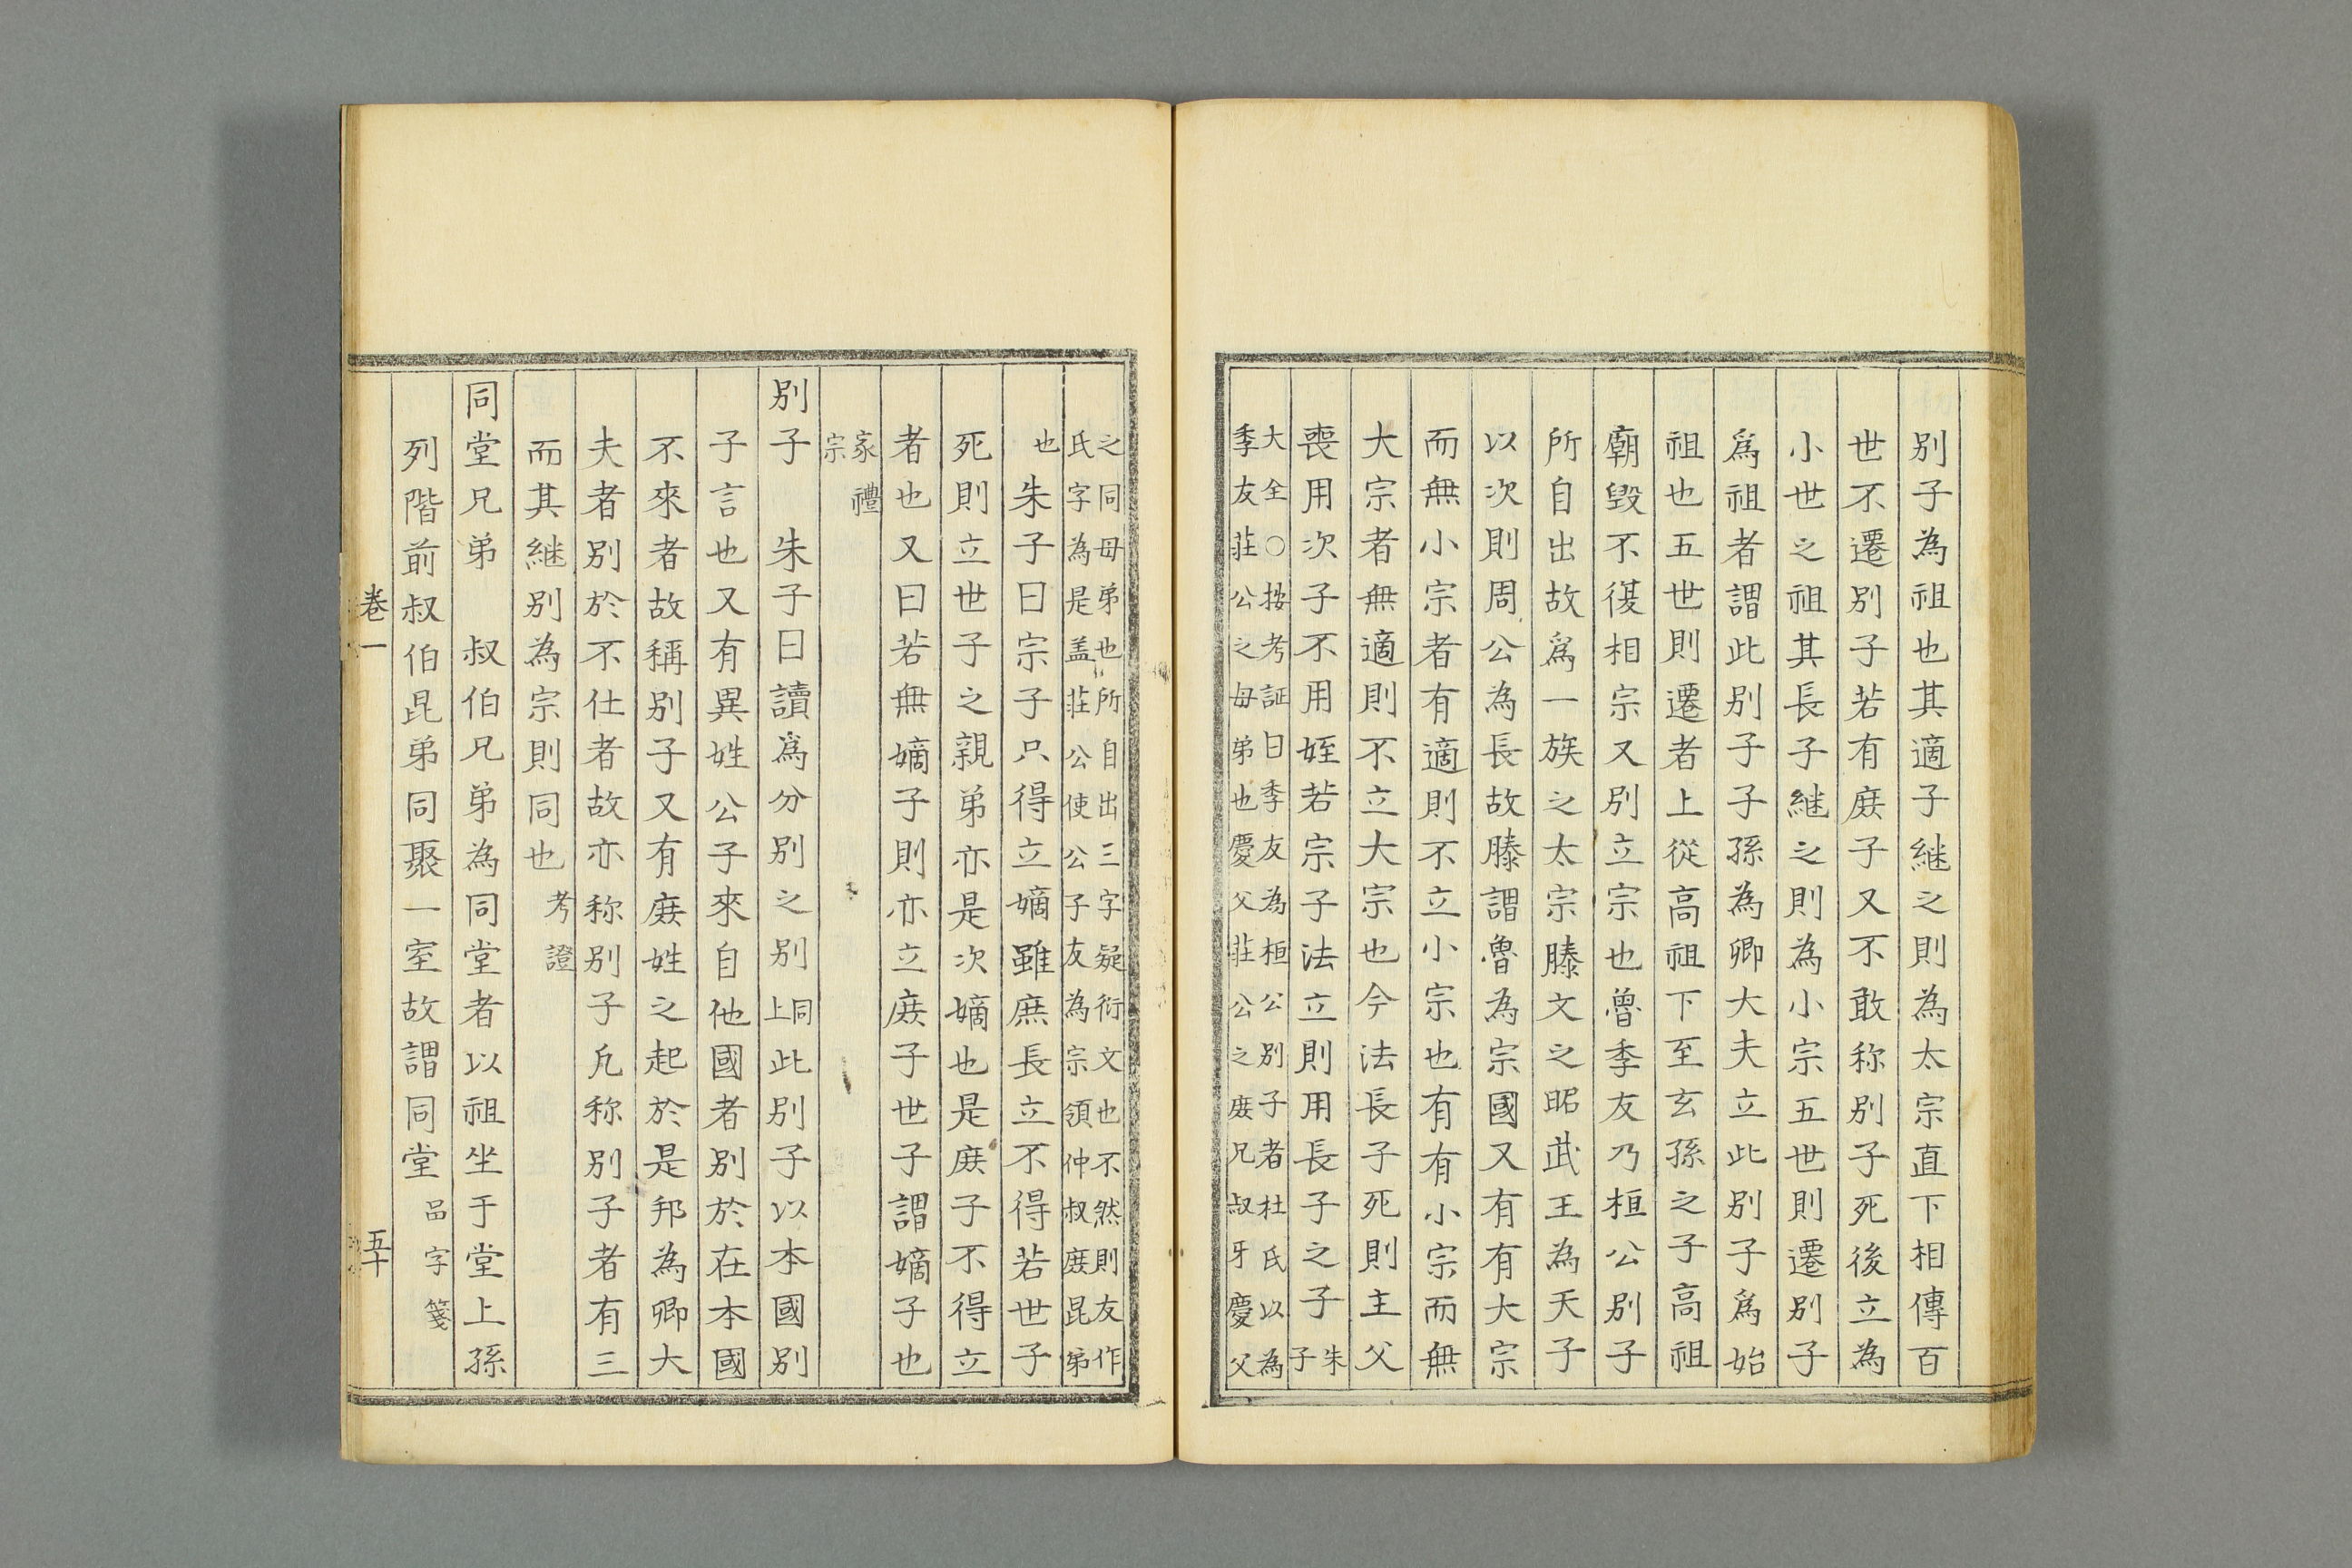 別子為祖也其適子継之則為太宗直下相傳百
世不遷別子若有庻子又不敢称別子死後立為
小世之祖其長子継之則為小宗五世則遷別子
爲祖者謂此別子子孫為卿大夫立此別子爲始
祖也五世則遷者上從高祖下至玄孫之子高祖
廟毀不復相宗又別立宗也魯季友乃桓公別子
所自出故爲一族之太宗滕文之昭武王為天子
以次則周公為長故滕謂魯為宗國又有有大宗
而無小宗者有適則不立小宗也有有小宗而無
大宗者無適則不立大宗也今法長子死則主父
喪用次子不用姪若宗子法立則用長子之子朱子
大全○按考証曰季友為桓公別子者杜氏以為
季友莊公之母弟也慶父莊公之庻兄叔牙慶父
之同母弟也所自出三字疑衍文也不然則友作
氏字為是盖莊公使公子友為宗領仲叔庻昆弟
也朱子曰宗子只得立嫡雖庶長立不得若世子
死則立世子之親弟亦是次嫡也是庻子不得立
者也又曰若無嫡子則亦立庻子世子謂嫡子也
家禮
宗
別子　朱子曰讀爲分別之別同上此別子以本國別
子言也又有異姓公子來自他國者別於在本國
不來者故稱別子又有庻姓之起於是邦為卿大
夫者別於不仕者故亦称別子凢称別子者有三
而其継別為宗則同也考證
同堂兄弟　叔伯兄弟為同堂者以祖坐于堂上孫
列階前叔伯昆弟同聚一室故謂同堂品字箋
卷一
五十